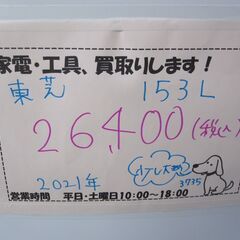 家電・工具、買取りします！
東芝 153L
26,400(税込)
2021年
3735
営業時間 平日・土曜日10:00～18:00